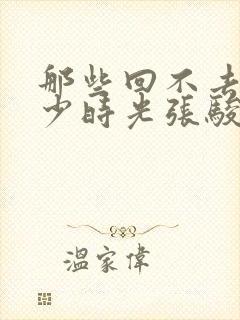 那些回不去
少時光張駿
溫家偉